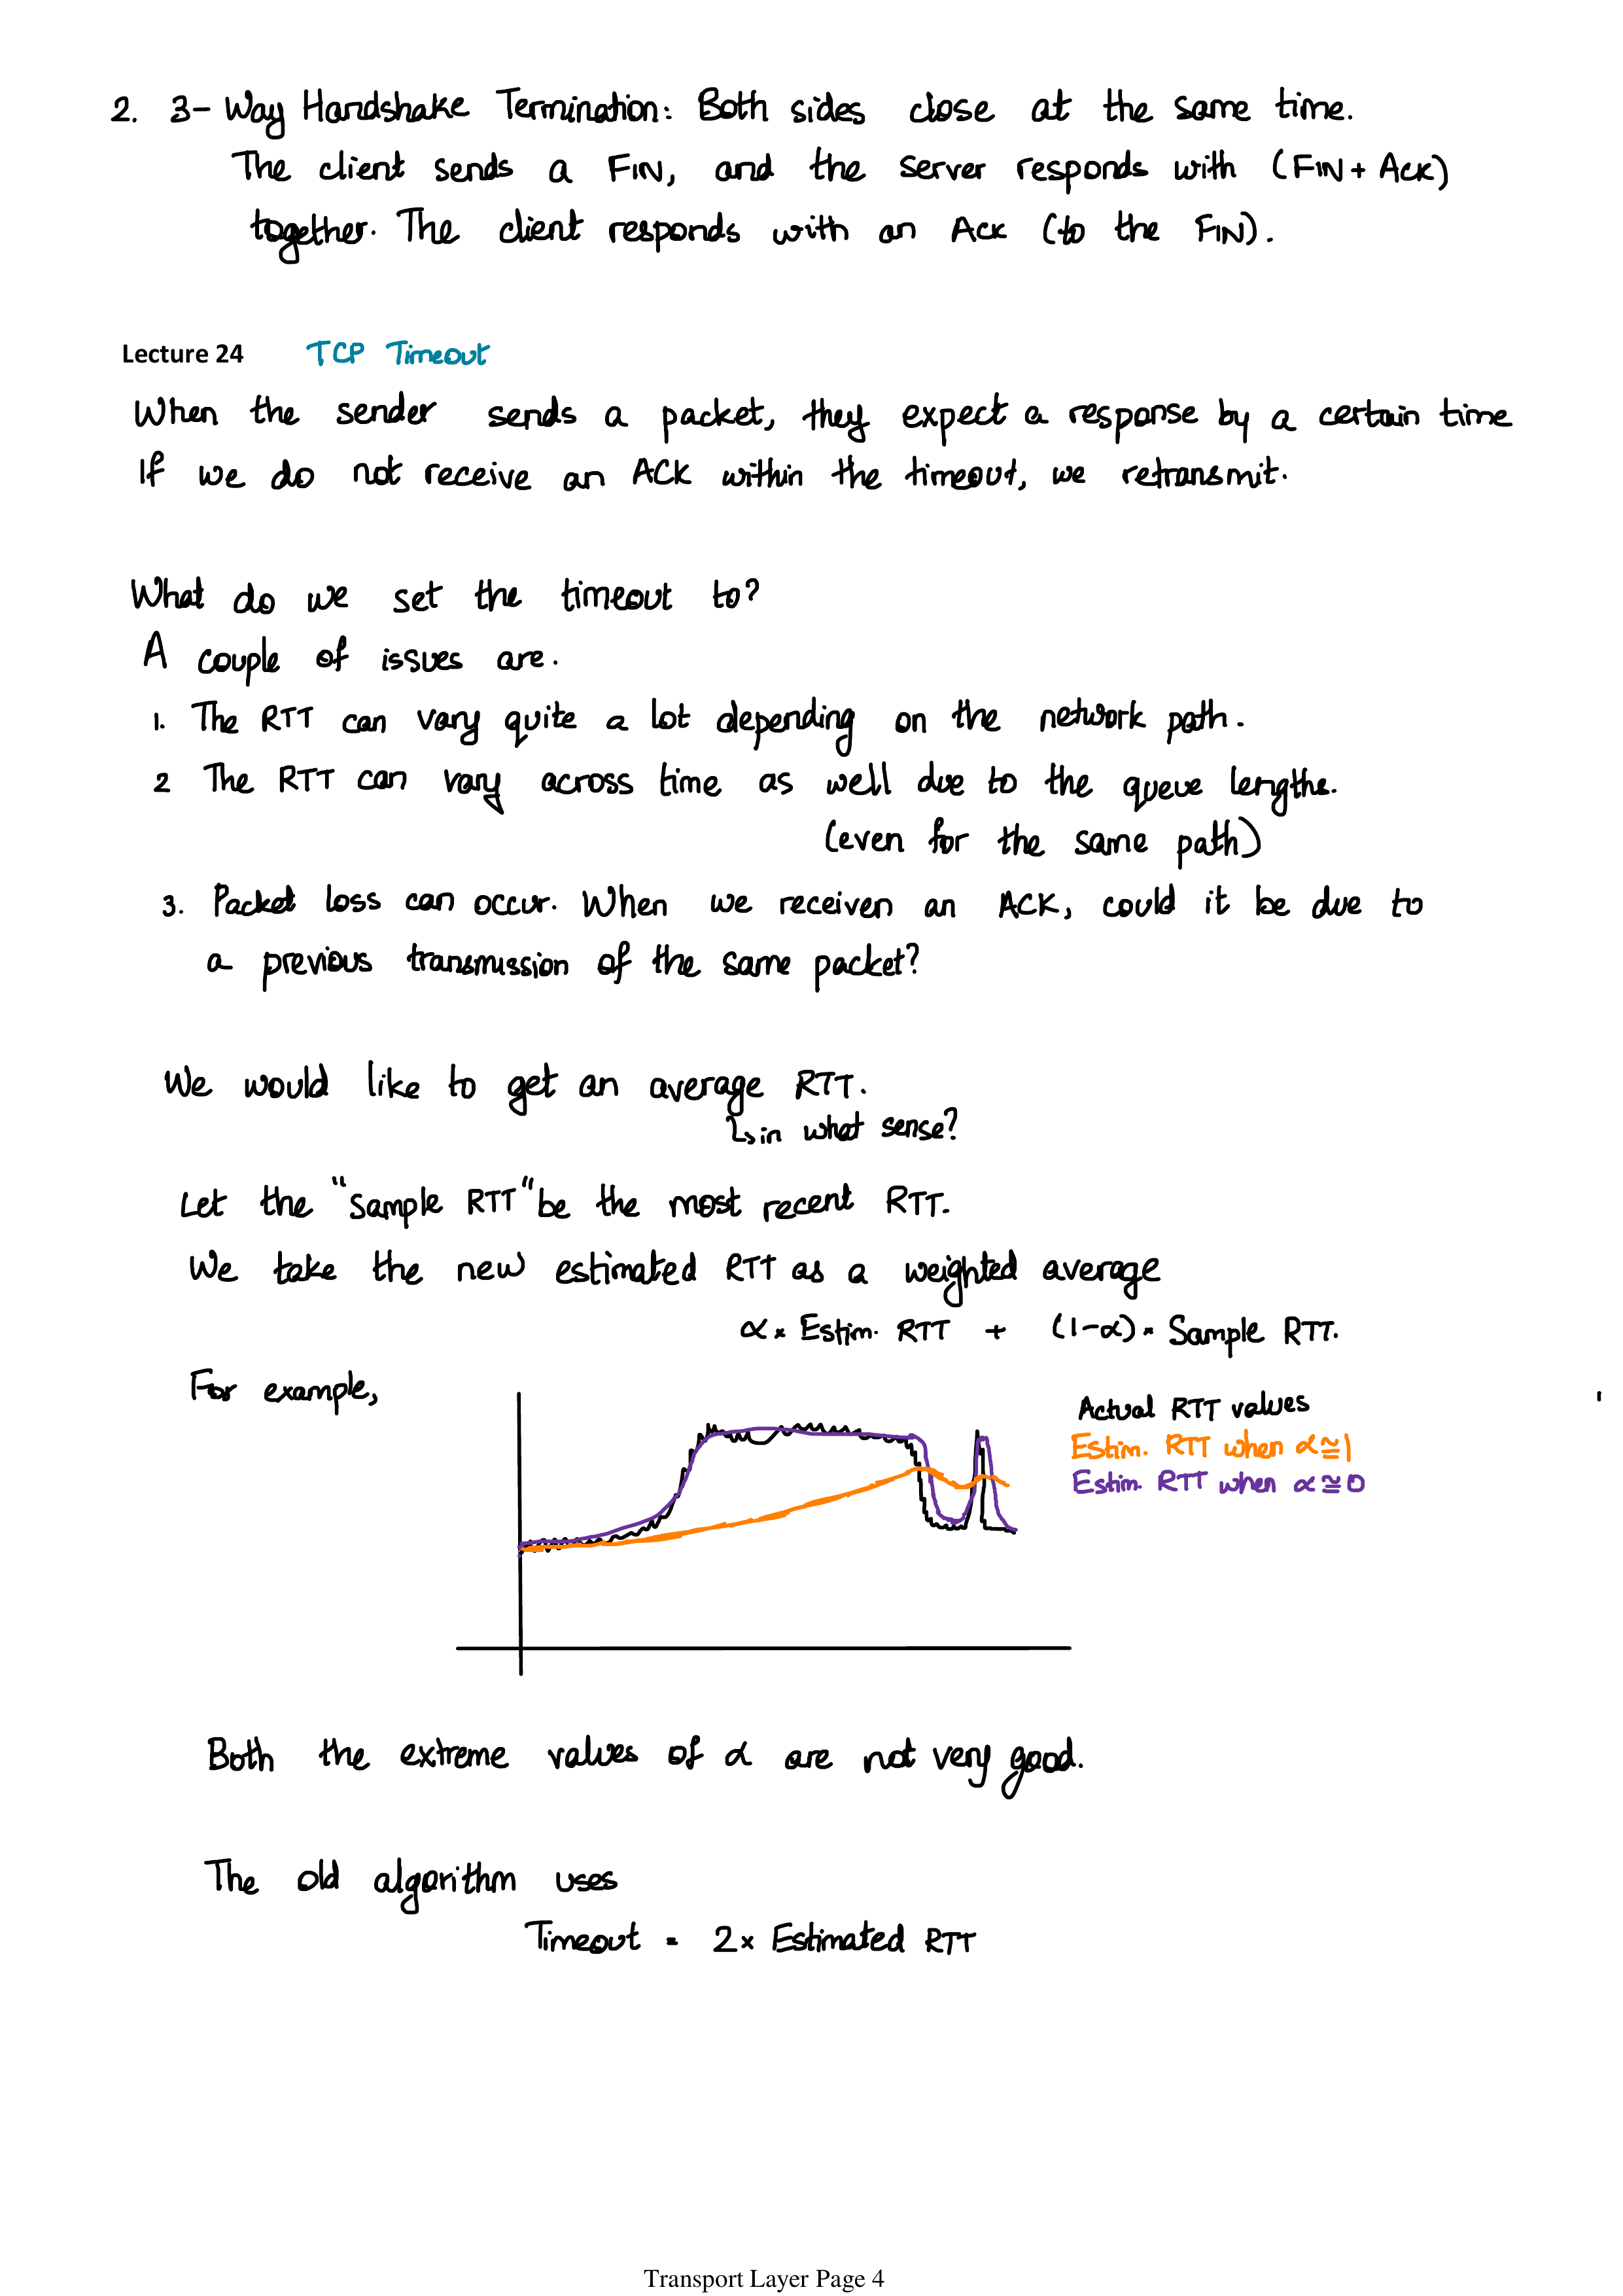 2. 3-Way Handshake Termination: Both sides close at the same time.
The client sends a FIN, and the server responds with (FIN + Ack)
together. The client responds with an Ack (to the FIN).
Lecture 24 TCP Timeout
When the sender sends a packet, they expect a response by a certain time
If we do not receive an ACK within the timeout, we retransmit.
What do we set the timeout to?
A couple of issues are.
1. The RTT can vary quite a lot depending on the network path.
2 The RTT can vary across time as well due to the queue lengths.
(even for the same path)
3. Packet loss can occur. When we receiven an ACK, could it be due to
a previous transmission of the same packet?
We would like to get an average RTT.
↳ in what sense?
Let the "Sample RTT" be the most recent RTT.
We take the new estimated RTT as a weighted average
α × Estim. RTT + (1-α) × Sample RTT.
For example,
Actual RTT values
Estim. RTT when α ≅ 1
Estim. RTT when α ≅ 0
Both the extreme values of α are not very good.
The old algorithm uses
Timeout = 2 × Estimated RTT
Transport Layer Page 4